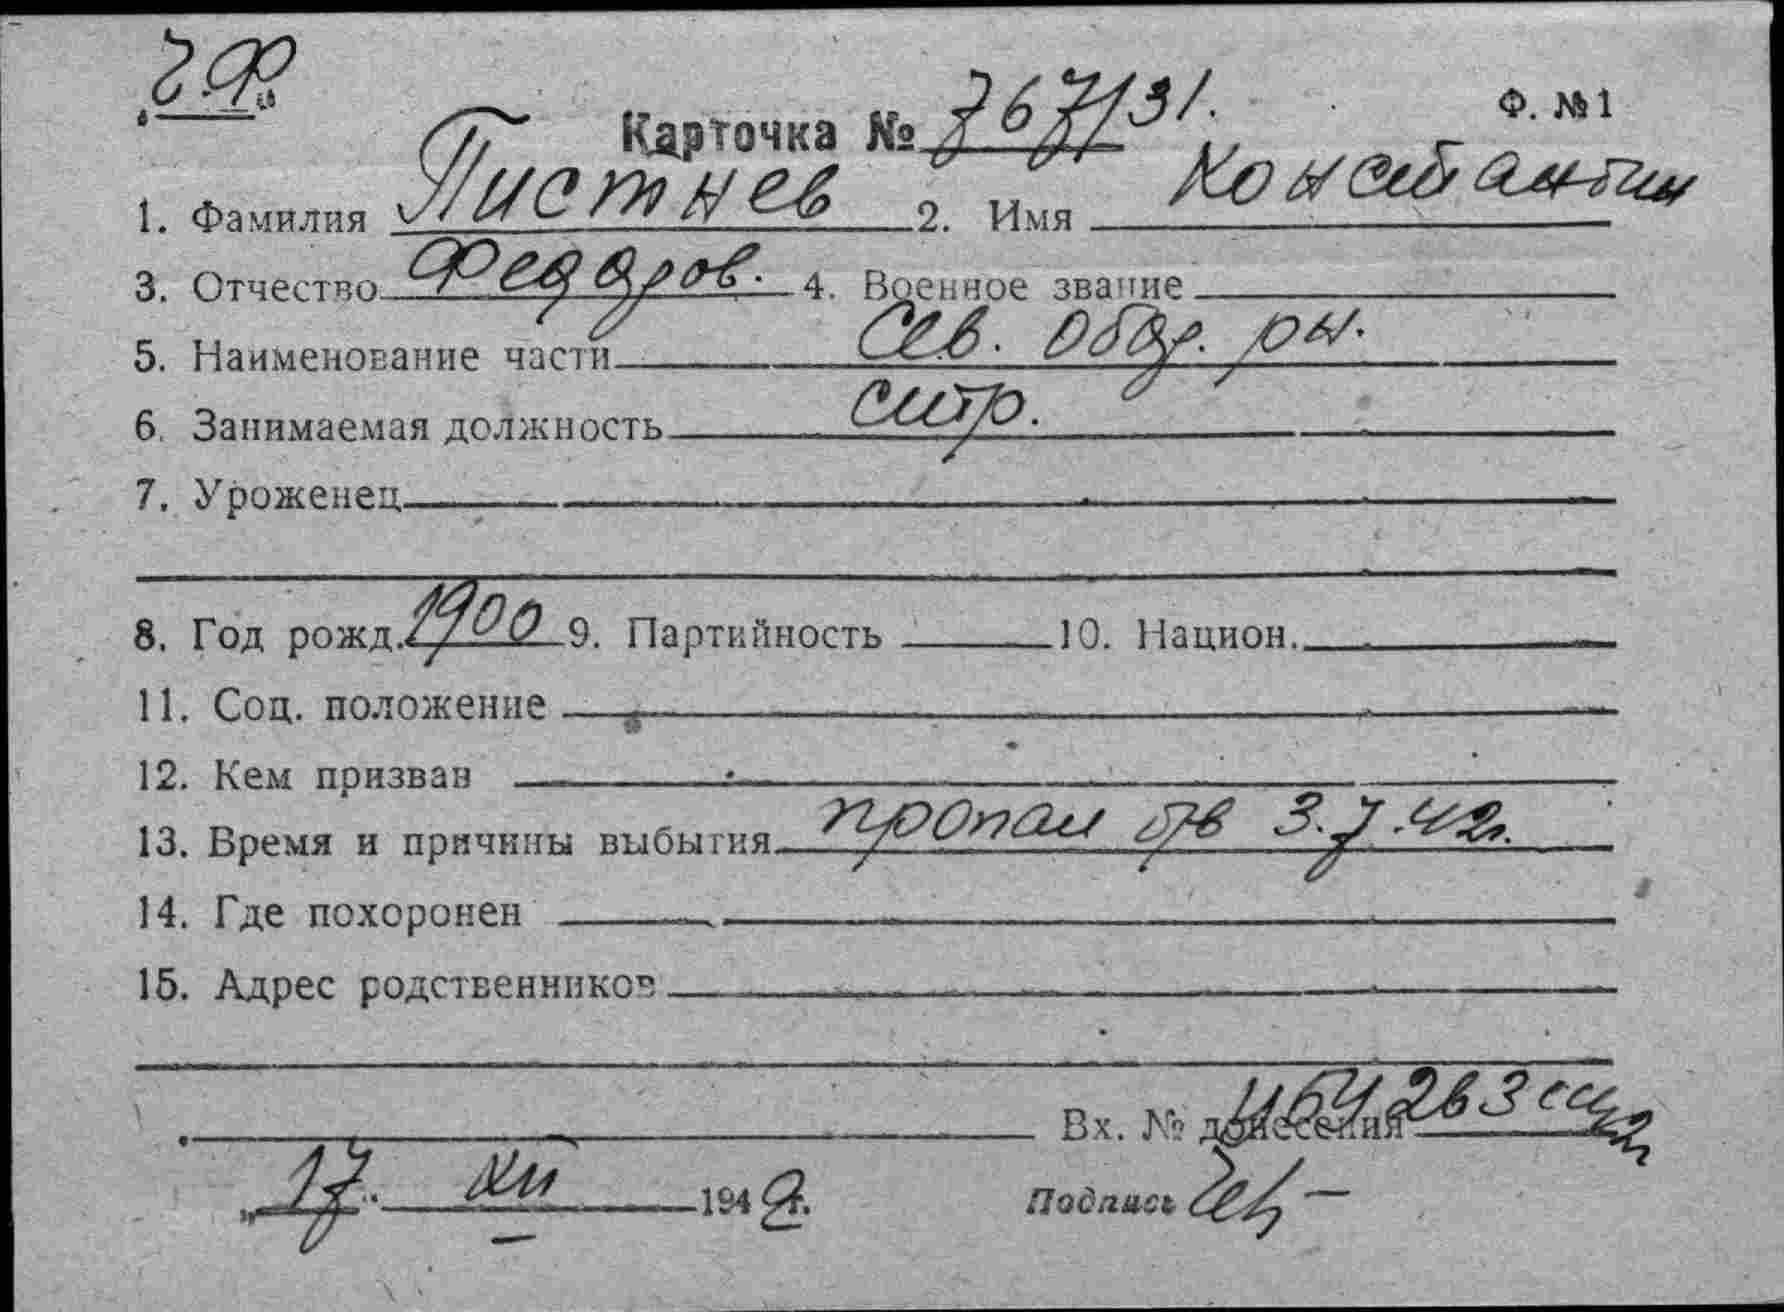 Ч.Ф.
Карточка № 767/31. Ф. №1
1. Фамилия Пистнев 2. Имя Константин
3. Отчество Федоров. 4. Военное звание
5. Наименование части Сев. Обор. рн.
6. Занимаемая должность стр.
7. Уроженец
8. Год рожд. 1900 9. Партийность 10. Национ.
11. Соц. положение
12. Кем призван
13. Время и причины выбытия пропал б/в 3.7.42г.
14. Где похоронен
15. Адрес родственников
Вх. № донесения
„17“ XII 1942г. Подпись